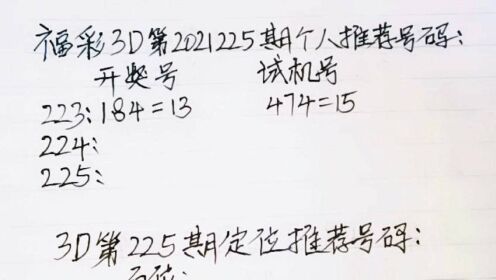 福彩3D第2021225期个人推荐号码:
开奖号 试机号
223:184=13 474=15
224:
225:
3D第225期定位推荐号码:
百位: